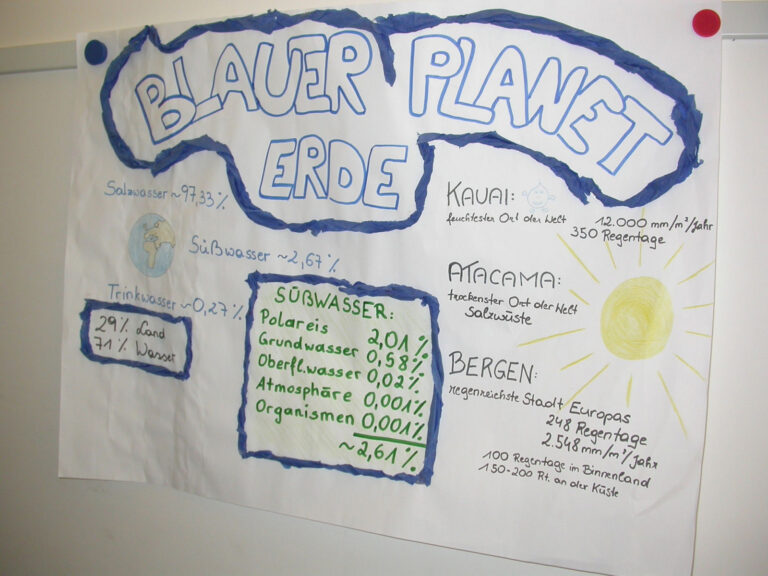 BLAUER PLANET
ERDE
Salzwasser ~97,33%
Süßwasser ~2,67%
Trinkwasser ~0,27%
29% Land
71% Wasser
SÜßWASSER:
Polareis 2,01%
Grundwasser 0,58%
Oberfl.wasser 0,02%
Atmosphäre 0,001%
Organismen 0,001%
~2,61%
KAUAI:
feuchtester Ort der Welt
12.000 mm/m²/Jahr
350 Regentage
ATACAMA:
trockenster Ort der Welt
Salzwüste
BERGEN:
regenreichste Stadt Europas
248 Regentage
2.548 mm/m²/Jahr
100 Regentage im Binnenland
150-200 Rt. an der Küste